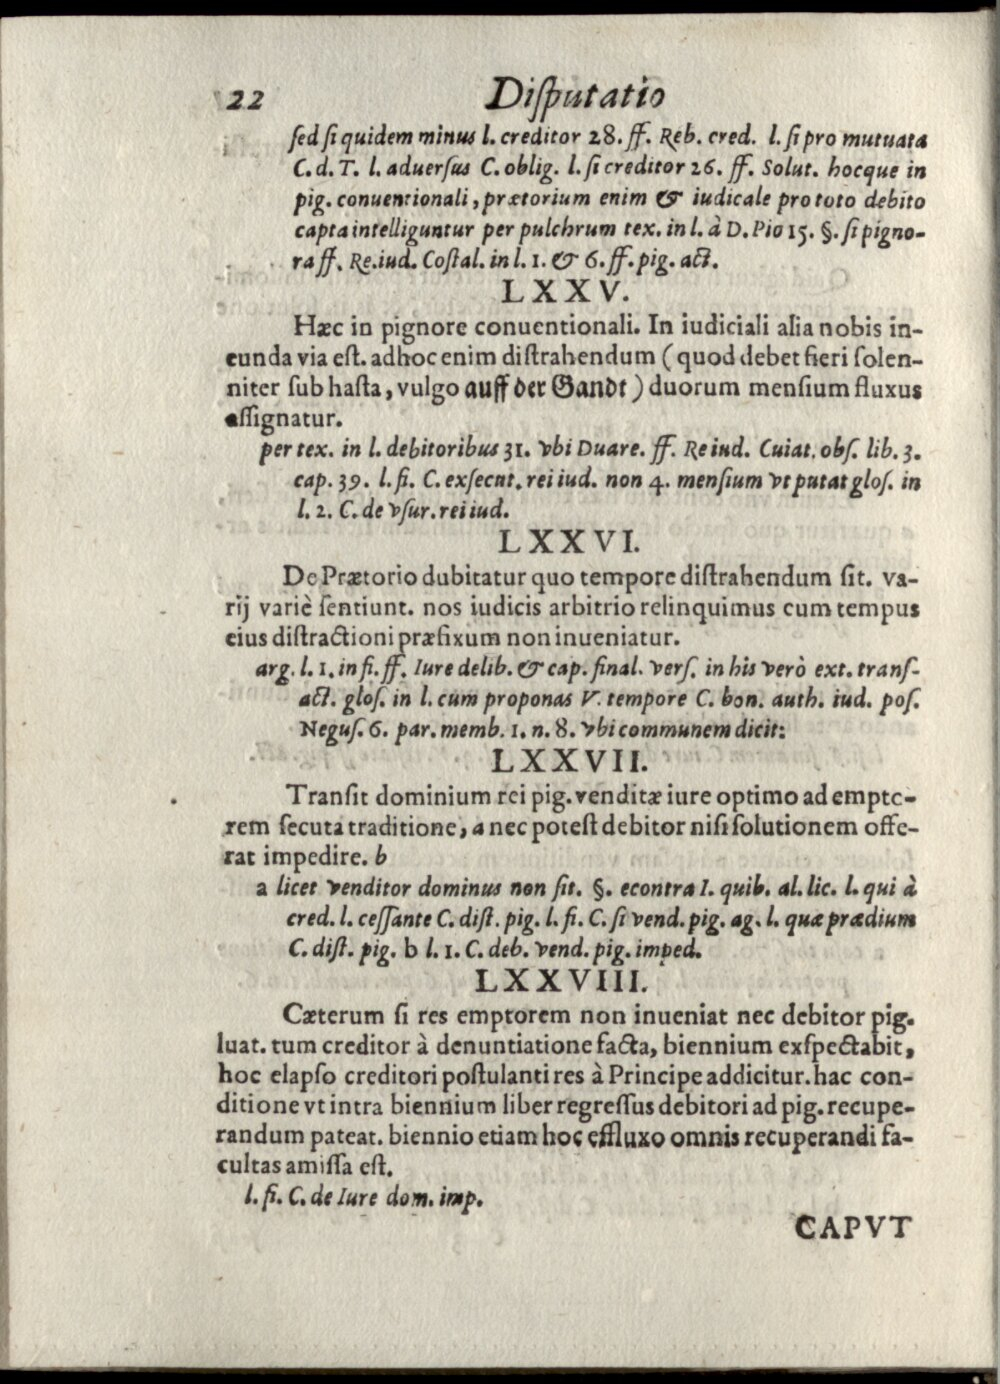 22 Disputatio
sed si quidem minus l. creditor 28. ff. Reb. cred. l. si pro mutuata
C. d. T. l. aduersus C. oblig. l. si creditor 26. ff. Solut. hocque in
pig. conuentionali, prætorium enim & iudicale pro toto debito
capta intelliguntur per pulchrum tex. in l. à D. Pio 15. §. si pigno-
ra ff. Re. iud. Costal. in l. 1. & 6. ff. pig. act.
LXXV.
Hæc in pignore conuentionali. In iudiciali alia nobis in-
eunda via est. adhoc enim distrahendum (quod debet fieri solen-
niter sub hasta, vulgo auff der Gandt) duorum mensium fluxus
assignatur.
per tex. in l. debitoribus 31. vbi Duare. ff. Re iud. Cuiat. obs. lib. 3.
cap. 39. l. fi. C. exsecut. rei iud. non 4. mensium vt putat glos. in
l. 2. C. de vsur. rei iud.
LXXVI.
De Prætorio dubitatur quo tempore distrahendum sit. va-
rij variè sentiunt. nos iudicis arbitrio relinquimus cum tempus
eius distractioni præfixum non inueniatur.
arg. l. 1. in fi. ff. Iure delib. & cap. final. vers. in his verò ext. trans-
act. glos. in l. cum proponas V. tempore C. bon. auth. iud. pos.
Negus. 6. par. memb. 1. n. 8. vbi communem dicit:
LXXVII.
Transit dominium rei pig. venditæ iure optimo ad empto-
rem secuta traditione, a nec potest debitor nisi solutionem offe-
rat impedire. b
a licet venditor dominus non sit. §. econtra I. quib. al. lic. l. qui à
cred. l. cessante C. dist. pig. l. fi. C. si vend. pig. ag. l. quæ prædium
C. dist. pig. b l. 1. C. deb. vend. pig. imped.
LXXVIII.
Cæterum si res emptorem non inueniat nec debitor pig.
luat. tum creditor à denuntiatione facta, biennium exspectabit,
hoc elapso creditori postulanti res à Principe addicitur. hac con-
ditione vt intra biennium liber regressus debitori ad pig. recupe-
randum pateat. biennio etiam hoc effluxo omnis recuperandi fa-
cultas amissa est.
l. fi. C. de Iure dom. imp.
CAPVT